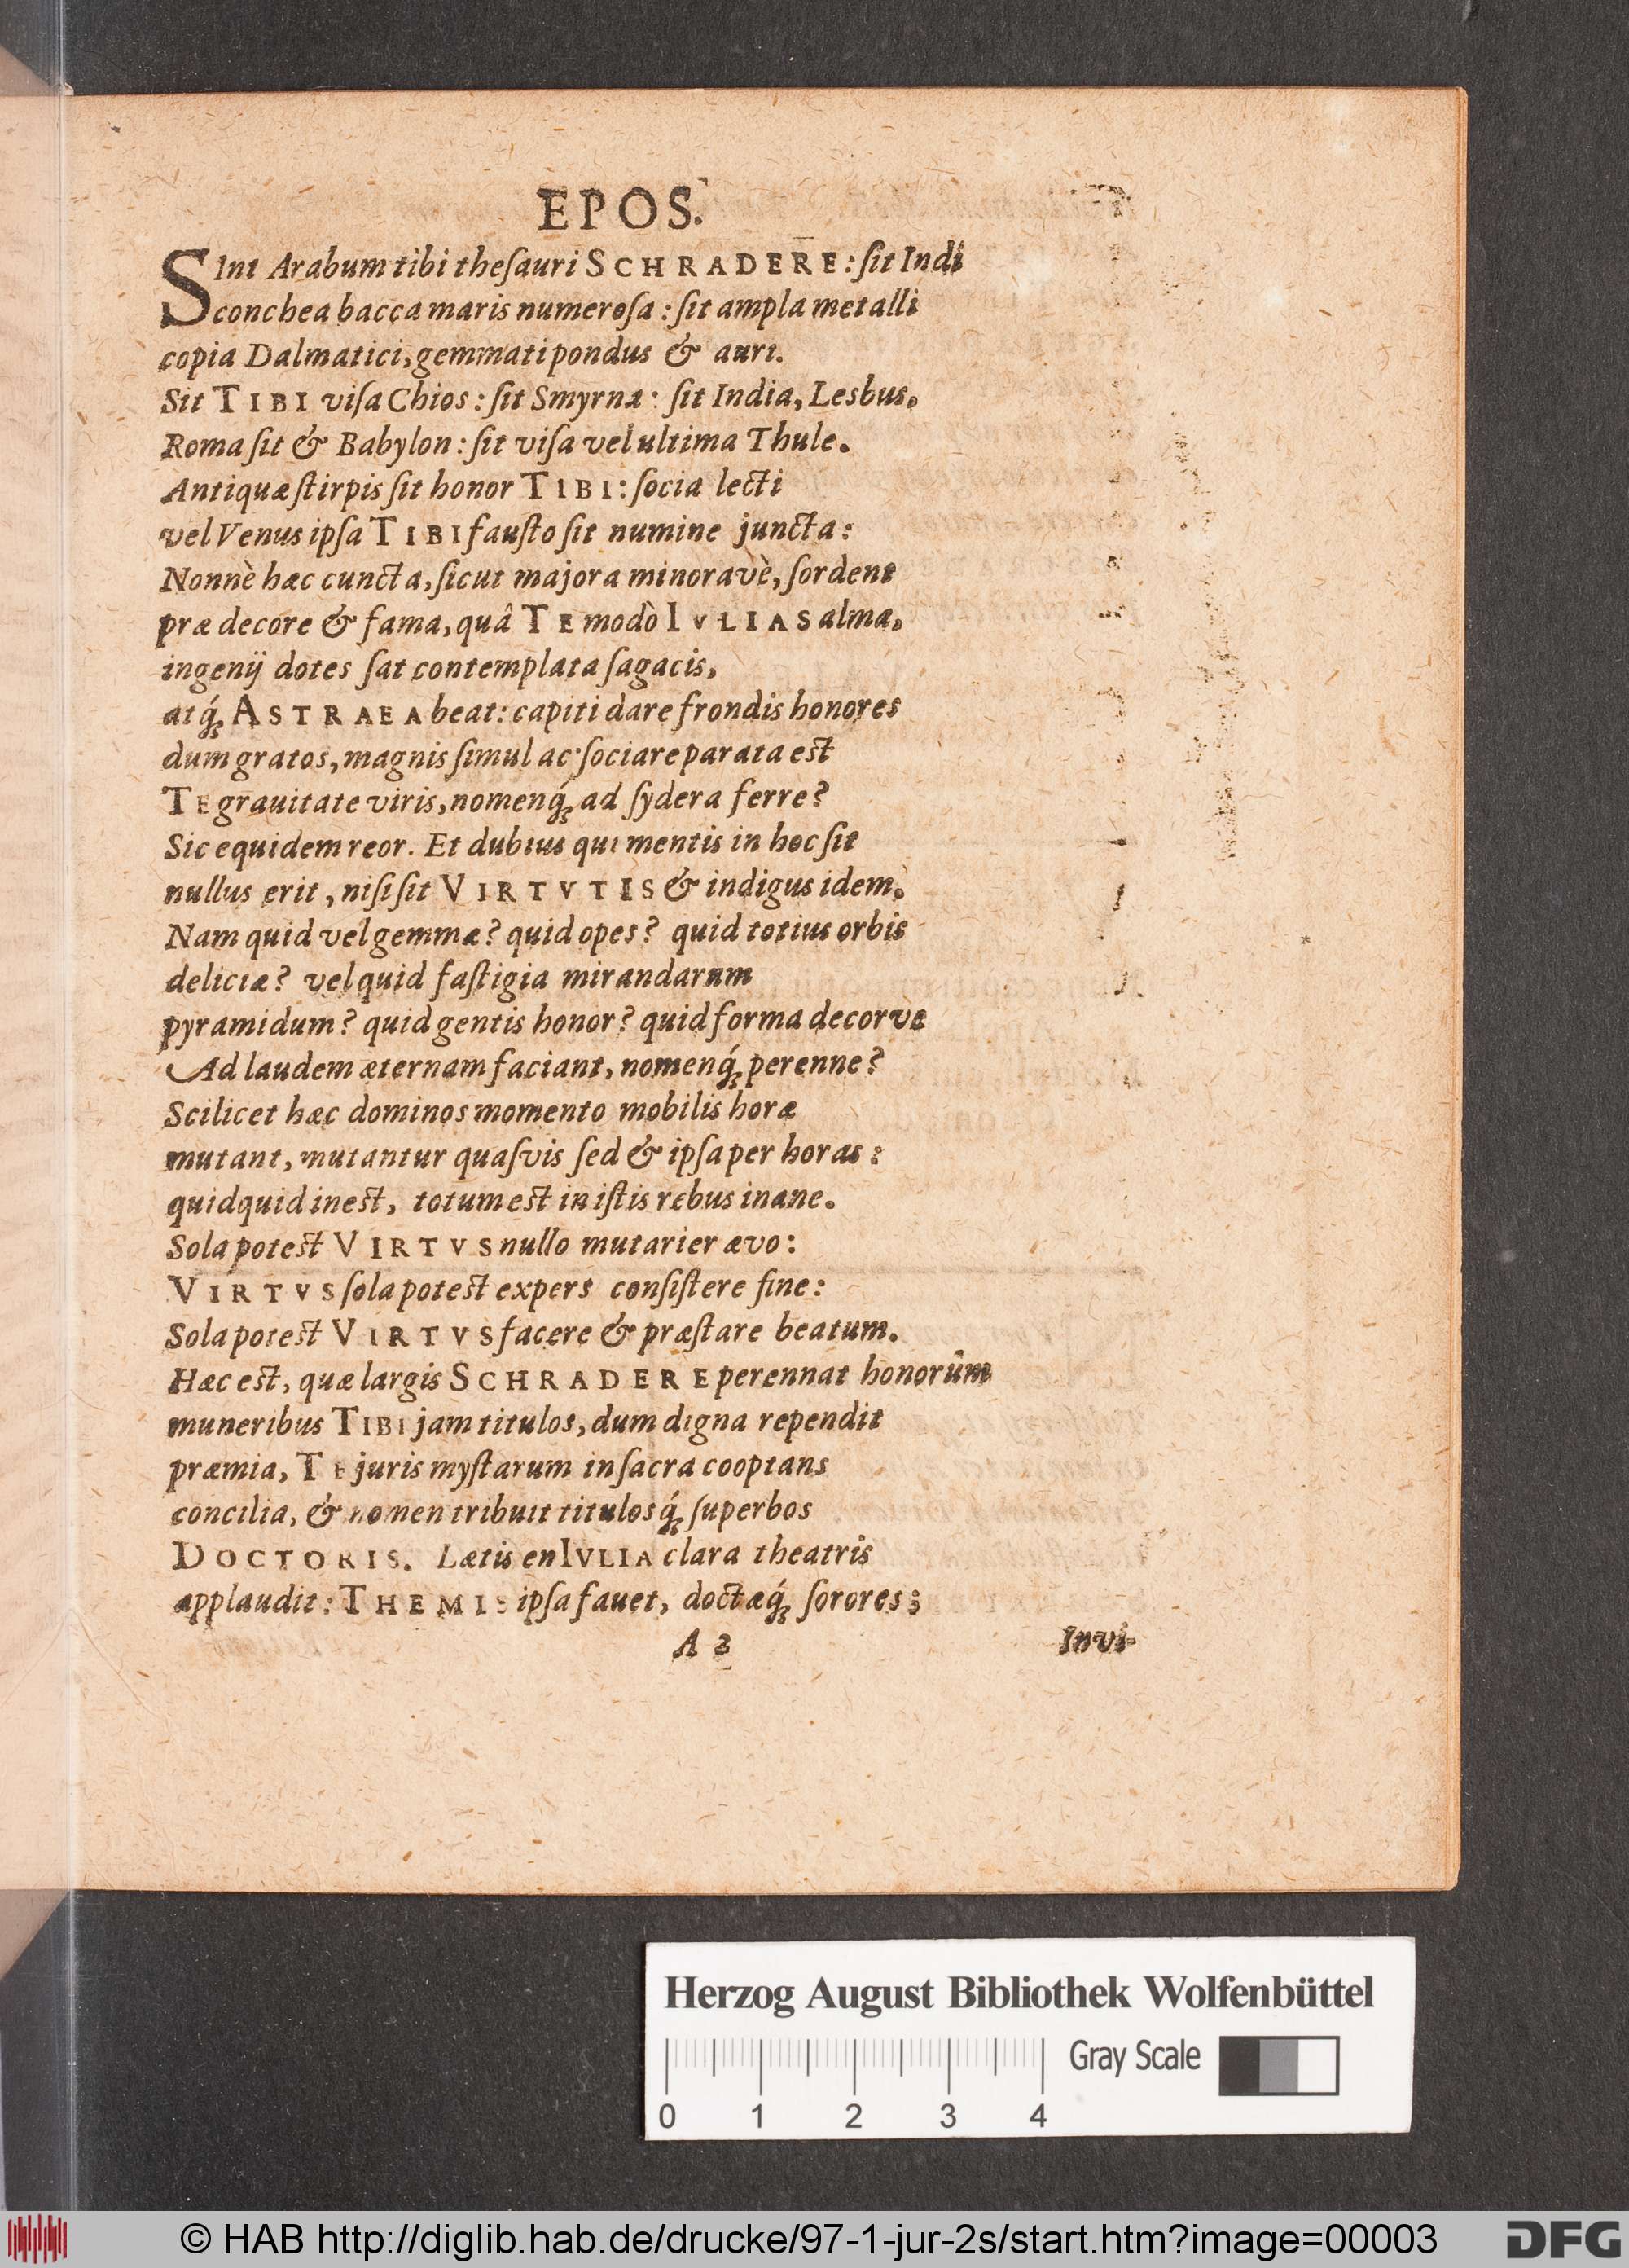 EPOS.
SInt Arabum tibi theſauri SCHRADERE: ſit Indi
conchea bacca maris numeroſa: ſit ampla metalli
copia Dalmatici, gemmati pondus & auri.
Sit TIBI viſa Chios: ſit Smyrna: ſit India, Lesbus.
Roma ſit & Babylon: ſit viſa vel ultima Thule.
Antiquæ ſtirpis ſit honor TIBI: ſocia lecti
vel Venus ipſa TIBI fauſto ſit numine juncta:
Nonnè hæc cuncta, ſicut majora minoravè, ſordent
præ decore & fama, quâ TE modò IVLIAS alma,
ingenij dotes ſat contemplata ſagacis,
atq́; ASTRAEA beat: capiti dare frondis honores
dum gratos, magnis ſimul ac ſociare parata eſt
TE grauitate viris, nomenq́; ad ſydera ferre?
Sic equidem reor. Et dubius qui mentis in hoc ſit
nullus erit, niſi ſit VIRTVTIS & indigus idem.
Nam quid vel gemmæ? quid opes? quid totius orbis
deliciæ? vel quid faſtigia mirandarum
pyramidum? quid gentis honor? quid forma decorve
Ad laudem æternam faciant, nomenq́; perenne?
Scilicet hæc dominos momento mobilis horæ
mutant, mutantur quaſvis ſed & ipſa per horas:
quidquid ineſt, totum eſt in iſtis rebus inane.
Sola poteſt VIRTVS nullo mutarier ævo:
VIRTVS ſola poteſt expers conſiſtere fine:
Sola poteſt VIRTVS facere & præſtare beatum.
Hæc eſt, quæ largis SCHRADERE perennat honorûm
muneribus TIBI jam titulos, dum digna rependit
præmia, TE juris myſtarum in ſacra cooptans
concilia, & nomen tribuit titulosq́; ſuperbos
DOCTORIS. Lætis en IVLIA clara theatris
applaudit: THEMIS ipſa fauet, doctæq́; ſorores;
A 2
Invi-
Herzog August Bibliothek Wolfenbüttel
Gray Scale
0 1 2 3 4
© HAB http://diglib.hab.de/drucke/97-1-jur-2s/start.htm?image=00003
DFG